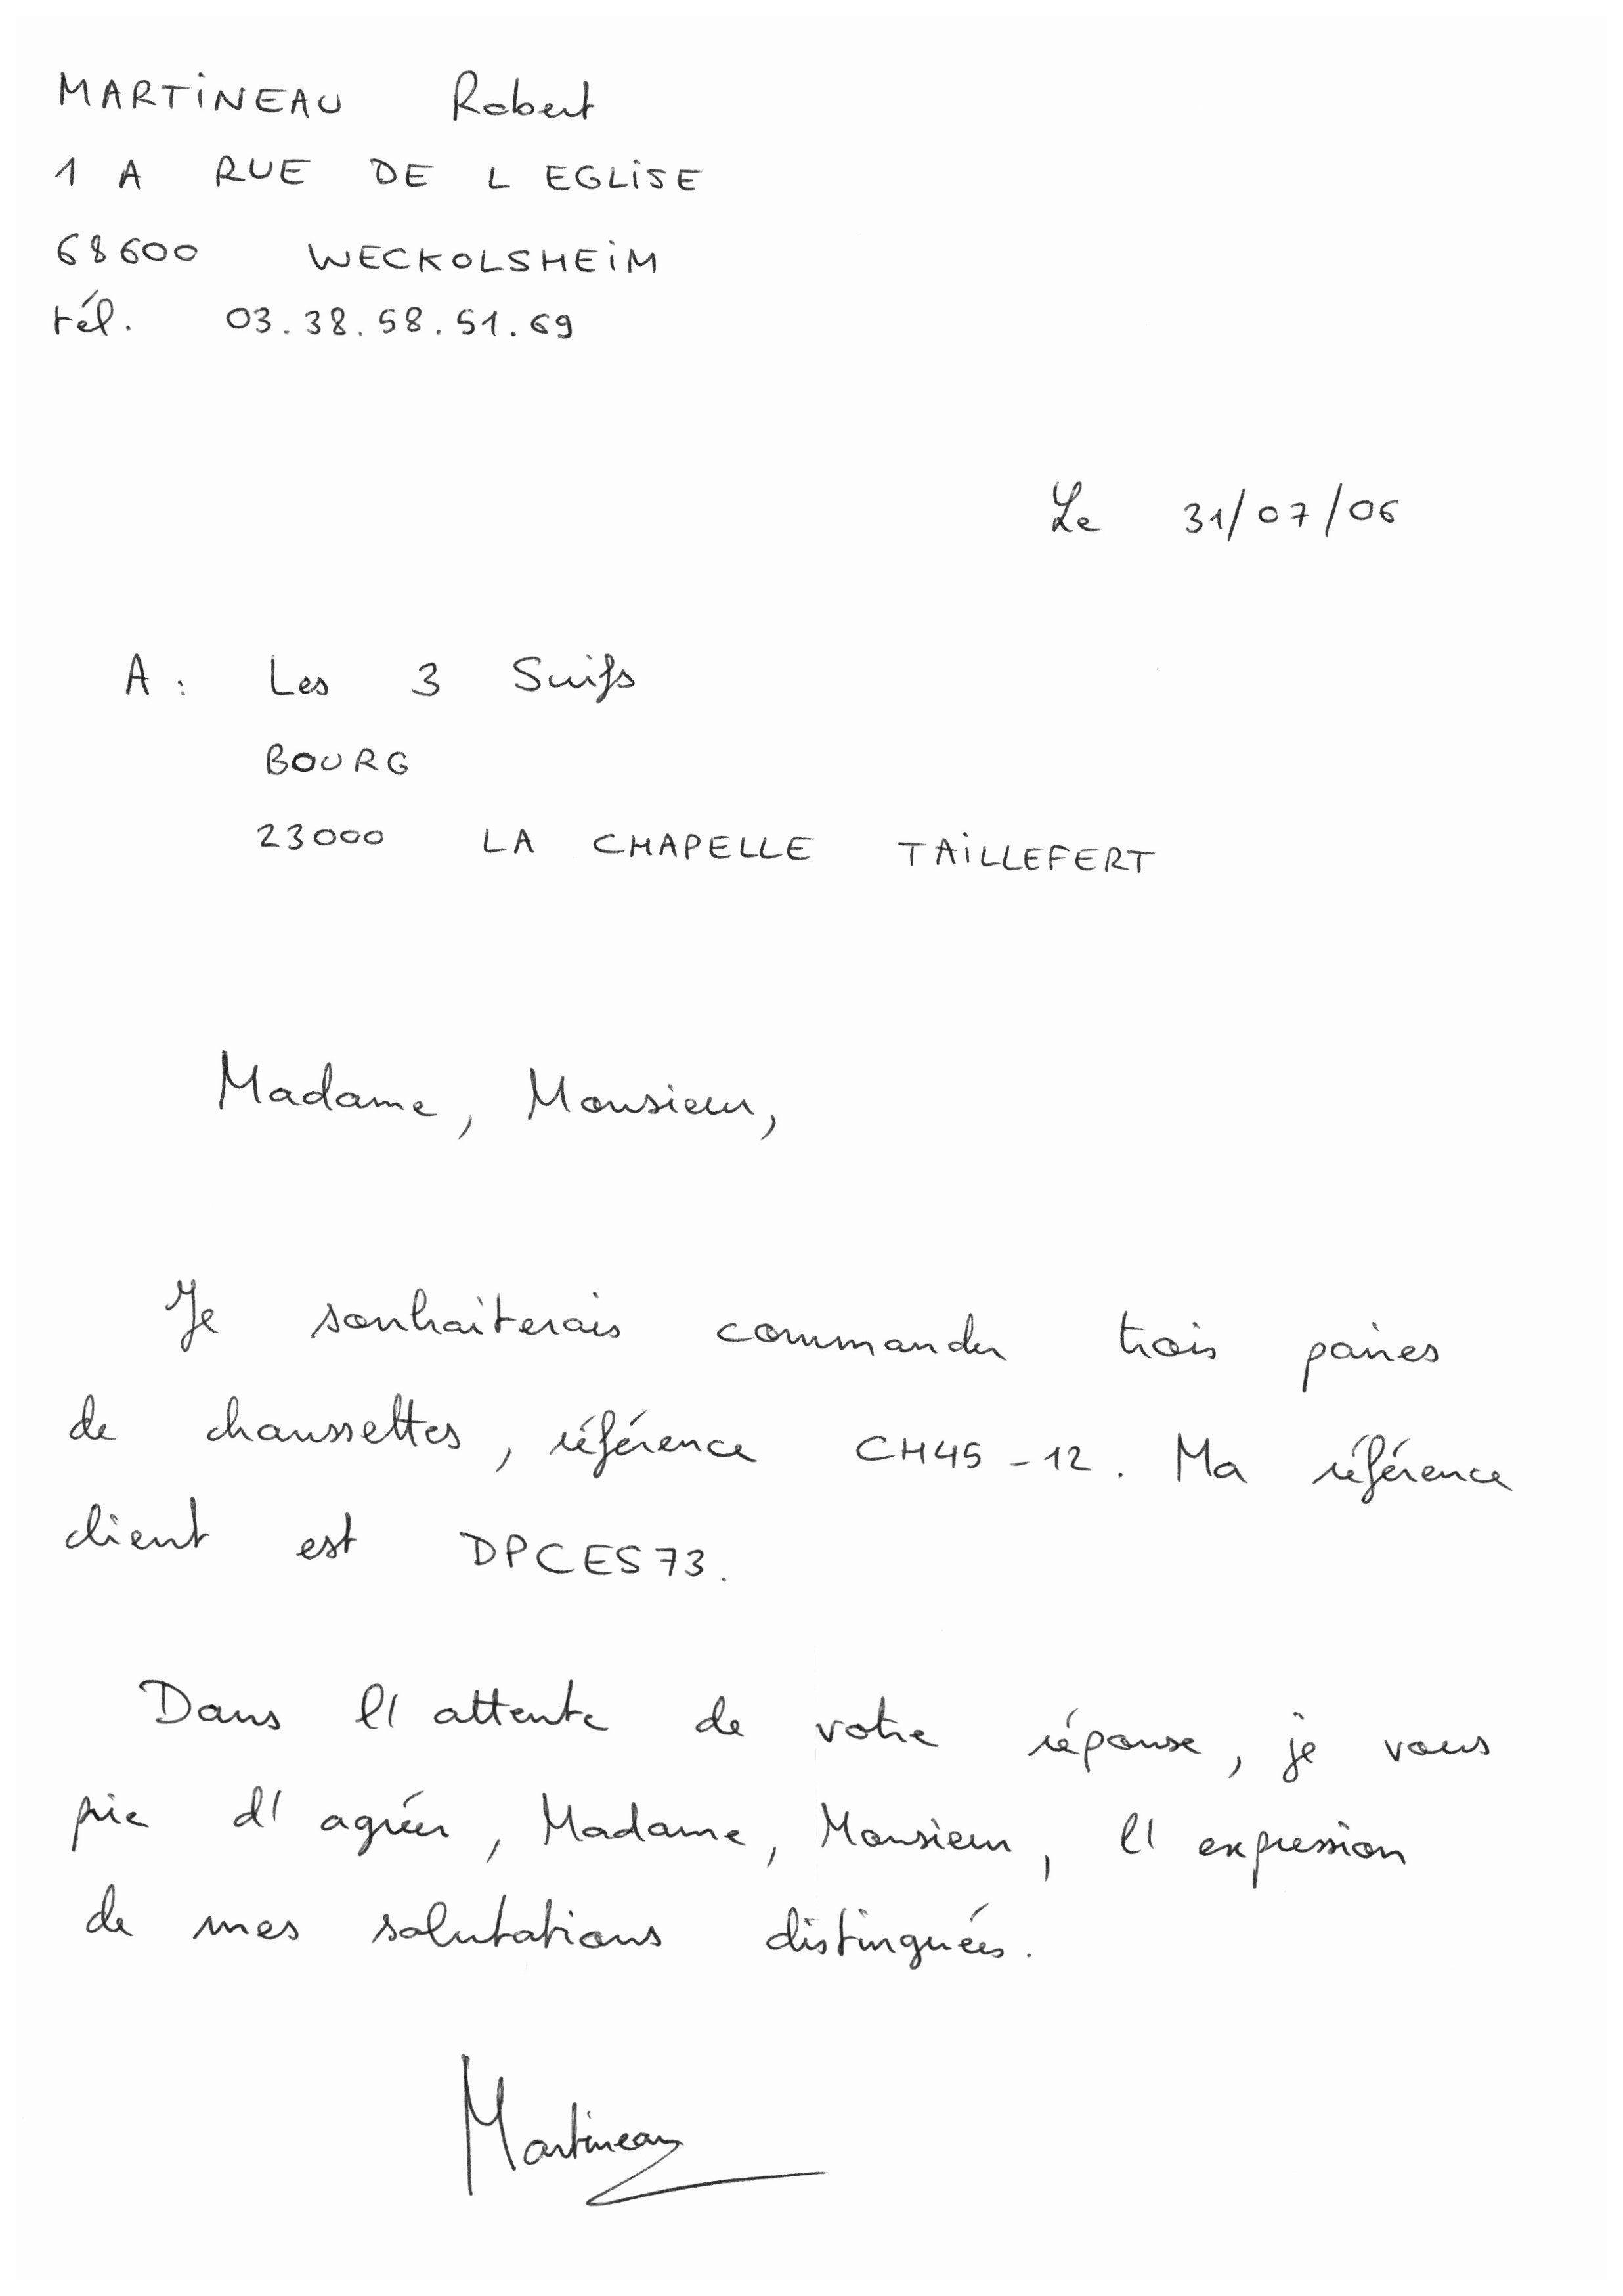 MARTINEAU Robert
1 A RUE DE L EGLISE
68600 WECKOLSHEIM
tél. 03.38.58.51.69
Le 31/07/06
A : Les 3 Suifs
BOURG
23000 LA CHAPELLE TAILLEFERT
Madame, Monsieur,
Je souhaiterais commander trois paires
de chaussettes, référence CH45-12. Ma référence
client est DPCES73.
Dans l'attente de votre réponse, je vous
prie d'agréer, Madame, Monsieur, l'expression
de mes salutations distinguées.
Martineau